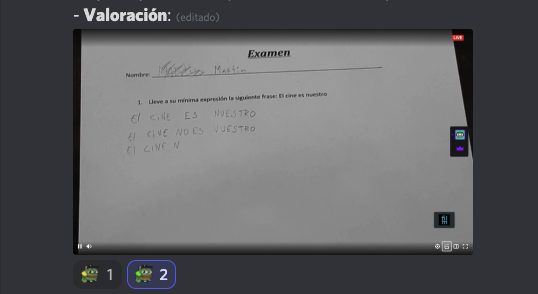 - Valoración: (editado)
LIVE
Examen
Nombre: Martin
1. Lleve a su mínima expresión la siguiente frase: El cine es nuestro
El CINE ES NUESTRO
El CINE NO ES VUESTRO
El CINE N
1
2